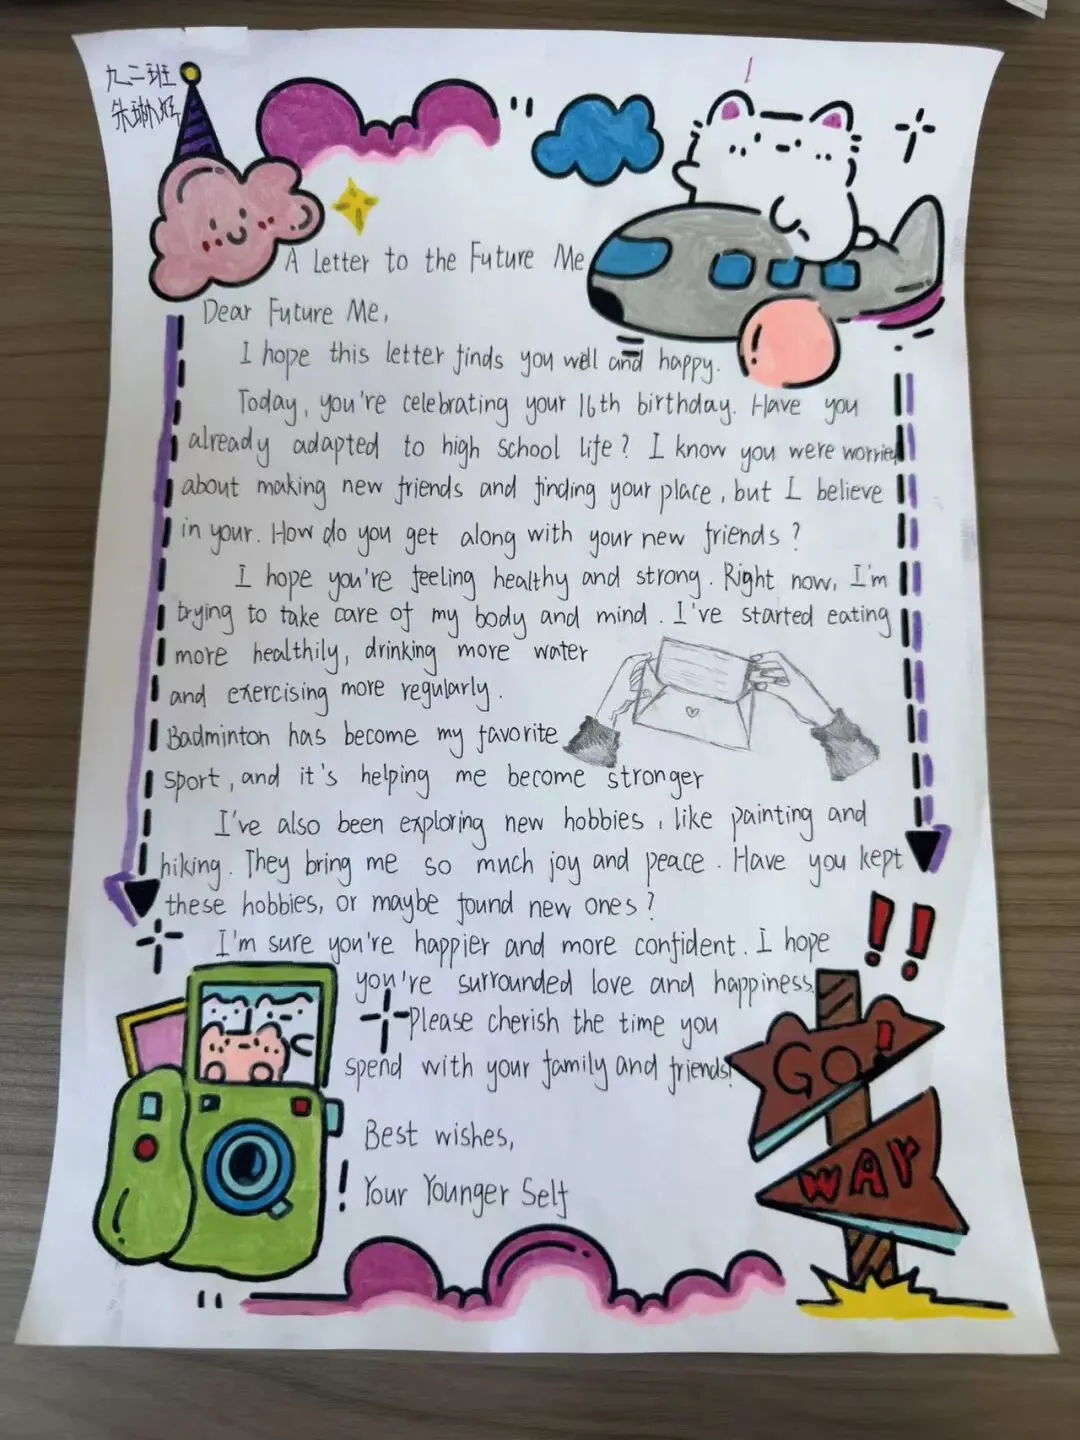 九二班
朱琳
A Letter to the Future Me
Dear Future Me,
I hope this letter finds you well and happy.
Today, you're celebrating your 16th birthday. Have you
already adapted to high school life? I know you were worried
about making new friends and finding your place, but I believe
in your. How do you get along with your new friends?
I hope you're feeling healthy and strong. Right now, I'm
trying to take care of my body and mind. I've started eating
more healthily, drinking more water
and exercising more regularly.
Badminton has become my favorite
sport, and it's helping me become stronger
I've also been exploring new hobbies, like painting and
hiking. They bring me so much joy and peace. Have you kept
these hobbies, or maybe found new ones?
I'm sure you're happier and more confident. I hope
you're surrounded love and happiness.
Please cherish the time you
spend with your family and friends!
Best wishes,
Your Younger Self
GO!
WAY